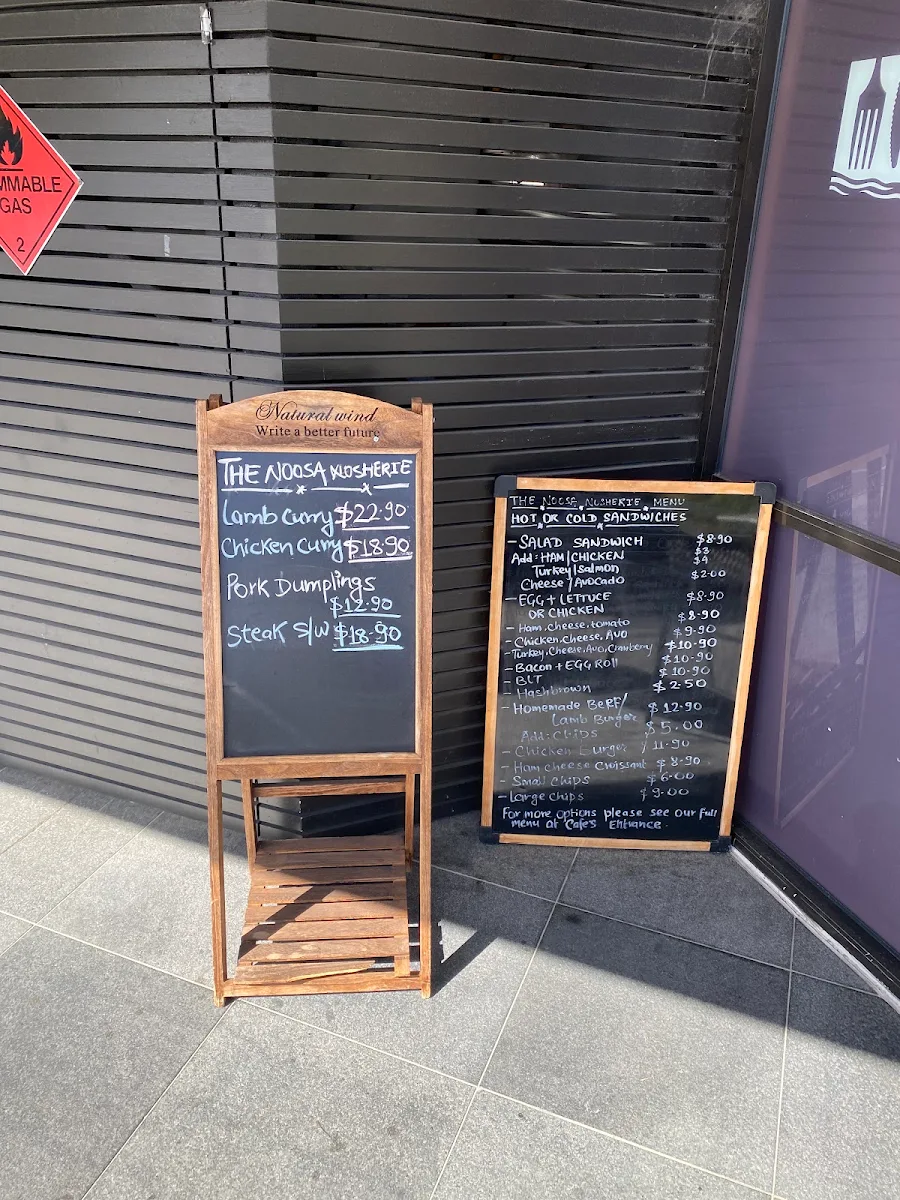 MMABLE
GAS
2
Natural wind
Write a better future
THE NOOSA NOSHERIE
Lamb Curry $22.90
Chicken Curry $18.90
Pork Dumplings
$12.90
Steak S/W $18.90
THE NOOSA NOSHERIE MENU
HOT OR COLD SANDWICHES
- SALAD SANDWICH $8.90
Add: HAM/CHICKEN $3
Turkey/Salmon $4
Cheese/Avocado $2.00
- EGG + LETTUCE $8.90
OR CHICKEN
- Ham, cheese, tomato $8.90
- Chicken, cheese, Avo $9.90
- Turkey, Cheese, Avo, Cranberry $10.90
- Bacon + EGG Roll $10.90
- BLT $10.90
- Hashbrown $2.50
- Homemade BEEF/ $12.90
Lamb Burger
Add: Chips $5.00
- Chicken Burger 11.90
- Ham cheese Croissant $8.90
- Small Chips $6.00
- Large Chips $9.00
For more options please see our Full
menu at Cafe's Entrance.